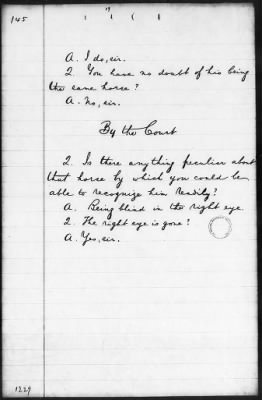 145
A. I do, sir.
Q. You have no doubt of his being
the same horse?
A. No, sir.
By the Court
Q. Is there anything peculiar about
that horse by which you could be
able to recognize him readily?
A. Being blind in the right eye.
Q. The right eye is gone?
A. Yes, sir.
1229